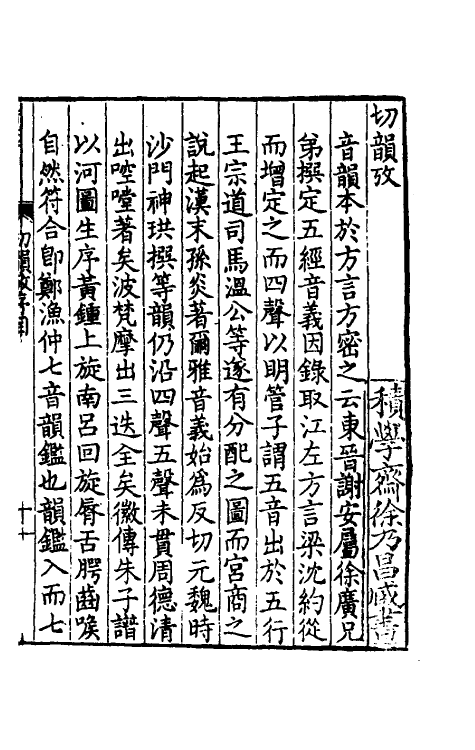 切韻攷
積學齋徐乃昌藏書
音韻本於方言方密之云東晉謝安屬徐廣兄
弟撰定五經音義因錄取江左方言梁沈約從
而增定之而四聲以明管子謂五音出於五行
王宗道司馬溫公等遂有分配之圖而宮商之
說起漢末孫炎著爾雅音義始為反切元魏時
沙門神珙撰等韻仍沿四聲五聲未貫周德清
出啌嘡著矣波梵摩出三迭全矣徽傳朱子譜
以河圖生序黃鍾上旋南呂回旋脣舌腭齒喉
自然符合卽鄭漁仲七音韻鑑也韻鑑入而七
切韻攷序目
十一